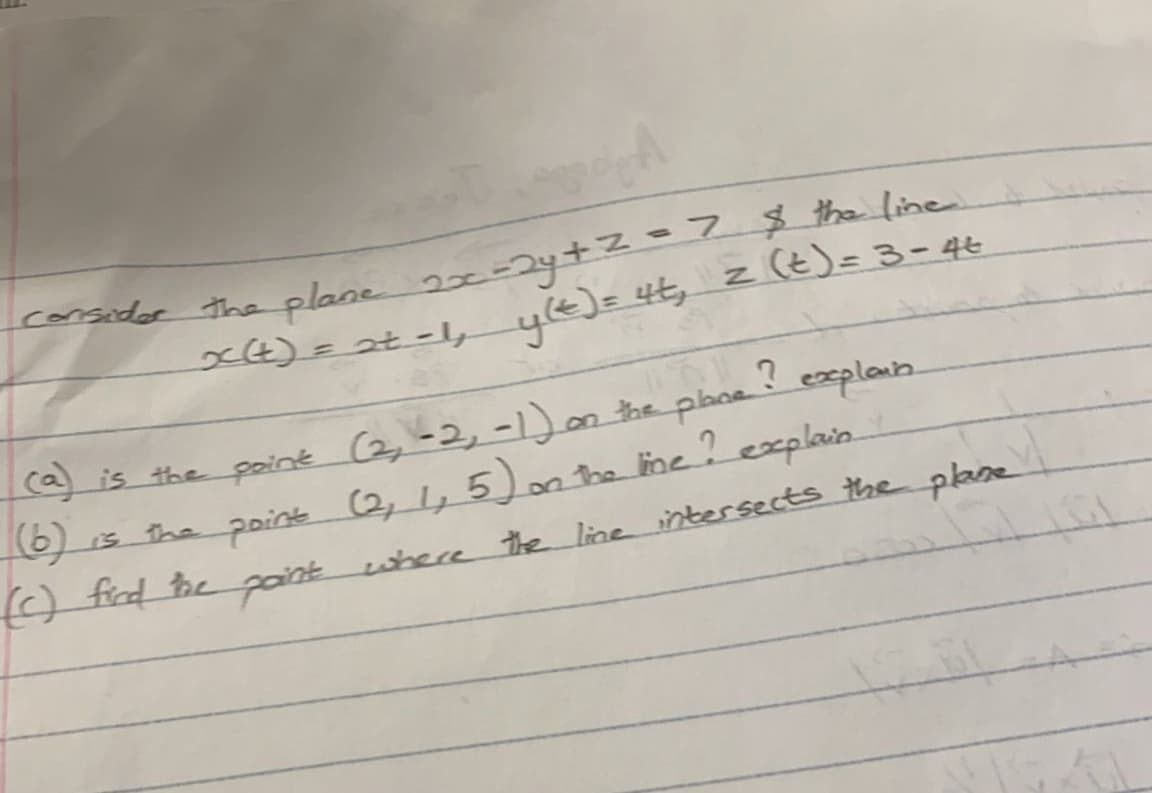 consider the plane 2x-2y+z=7 & the line
x(t)=2t-1, y(t)=4t, z(t)=3-4t
(a) is the point (2,-2,-1) on the plane? explain
(b) is the point (2,1,5) on the line? explain
(c) find the point where the line intersects the plane